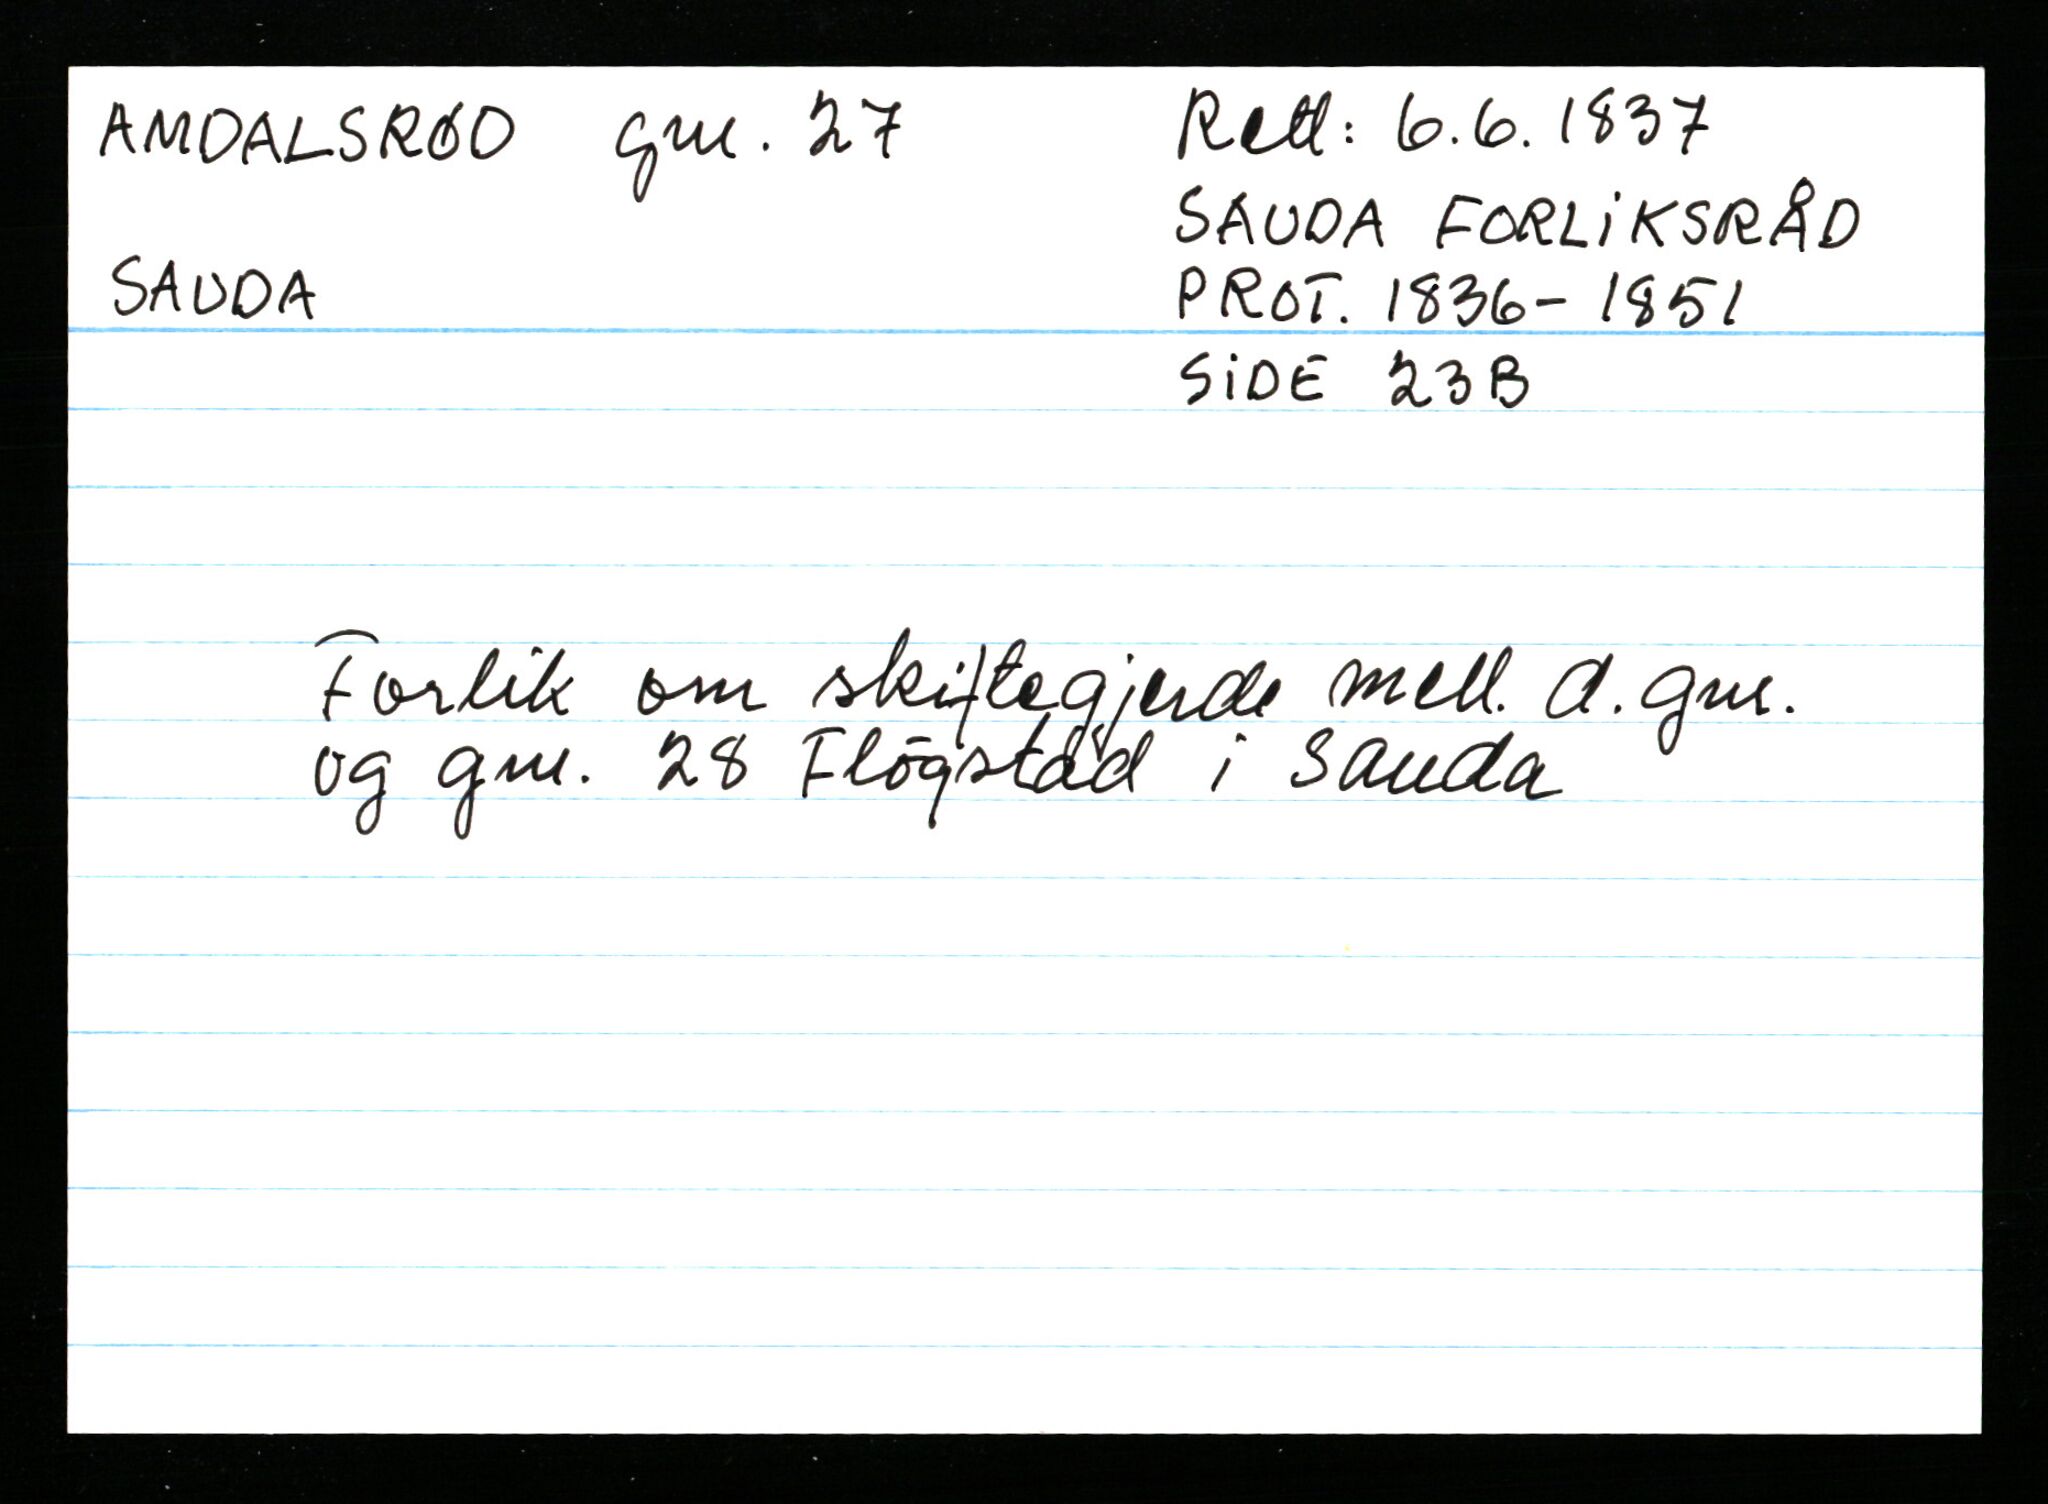 AMDALSRØD gnr. 27
SAUDA
Rett: 6.6.1837
SAUDA FORLIKSRÅD
PROT. 1836-1851
SIDE 23B
Forlik om skiftegjerde mell. d. gnr.
og gnr. 28 Fløgstad i Sauda